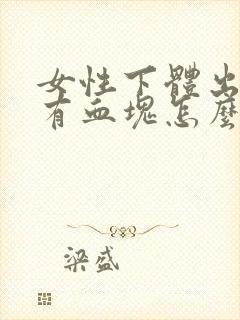 女性下體出
有血塊怎麼
梁盛